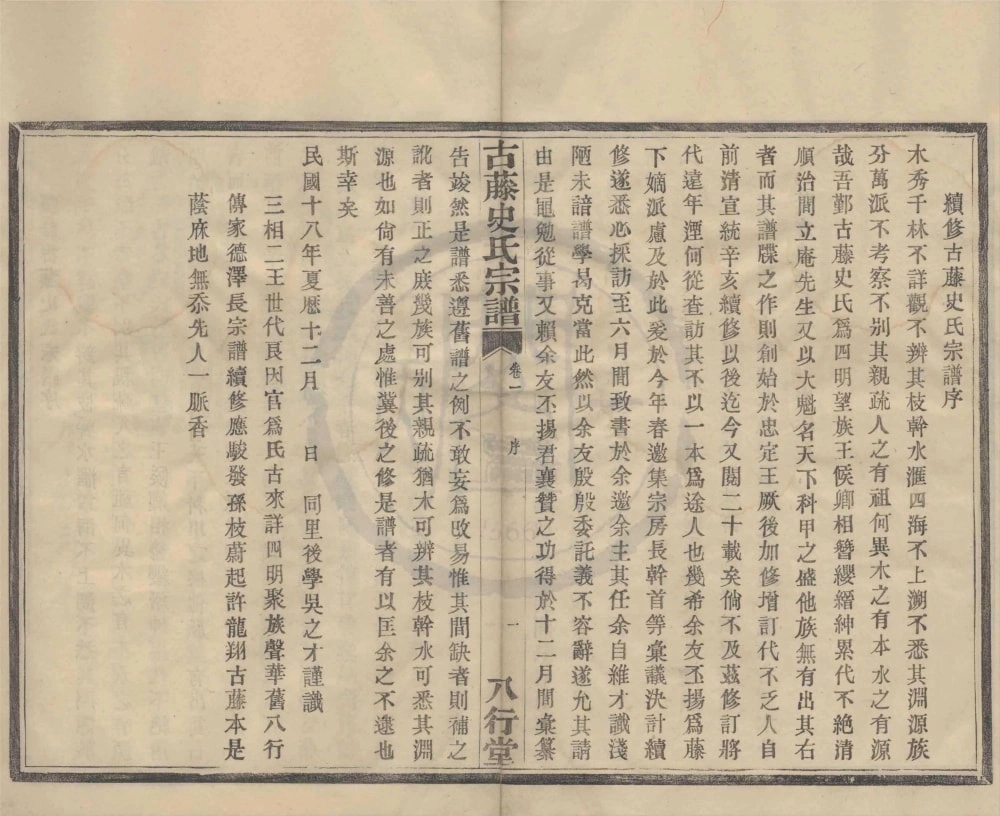 續修古藤史氏宗譜序
木秀千林不詳觀不辨其枝幹水滙四海不上溯不悉其淵源族
分萬派不考察不別其親疏人之有祖何異木之有本水之有源
哉吾鄞古藤史氏爲四明望族王候卿相簪纓縉紳累代不絕清
順治間立庵先生又以大魁名天下科甲之盛他族無有出其右
者而其譜牒之作則創始於忠定王厥後加修增訂代不乏人自
前清宣統辛亥續修以後迄今又閱二十載矣倘不及茲修訂將
代遠年湮何從查訪其不以一本爲途人也幾希余友丕揚爲藤
下嫡派慮及於此爰於今年春邀集宗房長幹首等彙議決計續
修遂悉心採訪至六月間致書於余邀余主其任余自維才識淺
陋未諳譜學曷克當此然以余友殷殷委託義不容辭遂允其請
由是黽勉從事又賴余友丕揚君襄贊之功得於十二月間彙纂
古藤史氏宗譜 卷一 序 一 八行堂
告竣然是譜悉遵舊譜之例不敢妄爲改易惟其間缺者則補之
訛者則正之庶幾族可別其親疏猶木可辨其枝幹水可悉其淵
源也如尙有未善之處惟冀後之修是譜者有以匡余之不逮也
斯幸矣
民國十八年夏曆十二月 日 同里後學吳之才謹識
三相二王世代良因官爲氏古來詳四明聚族聲華舊八行
傳家德澤長宗譜續修應駿發孫枝蔚起許龍翔古藤本是
蔭庥地無忝先人一脈香